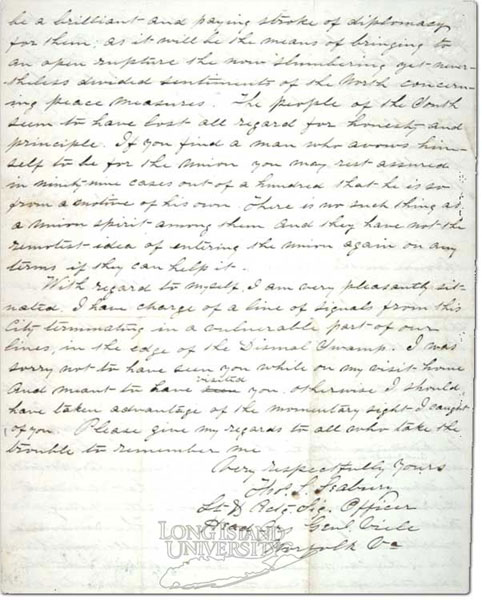 be a brilliant and paying stroke of diplomacy
for them; as it will be the means of bringing to
an open rupture the now slumbering yet never-
theless divided sentiments of the North concern-
ing peace measures. The people of the South
seem to have lost all regard for honesty and
principle. If you find a man who avows him-
self to be for the Union you may rest assured
in ninety nine cases out of a hundred that he is so
from a motive of his own. There is no such thing as
a union spirit among them and they have not the
remotest idea of entering the union again on any
terms if they can help it.
With regard to myself, I am very pleasantly sit-
uated. I have charge of a line of signals from this
City terminating in a vulnerable part of our
lines, in the edge of the Dismal Swamp. I was
sorry not to have seen you while on my visit home
and meant to have visited you, otherwise I should
have taken advantage of the momentary sight I caught
of you. Please give my regards to all who take the
trouble to remember me
Very respectfully Yours
Thos. S. Seabury
Lt & Actg. Sig. Officer
Head Qrs Genl. Viele
Norfolk Va
LONG ISLAND
UNIVERSITY